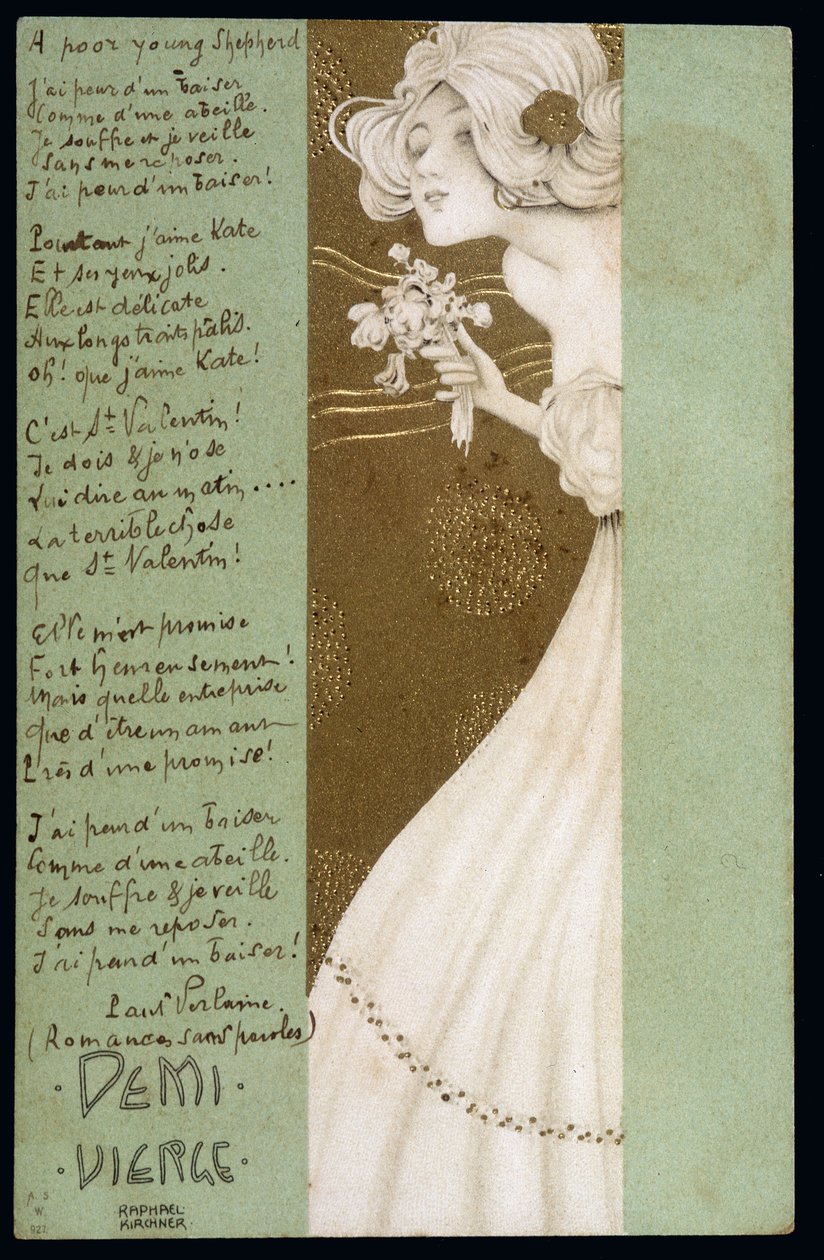 A poor young Shepherd
J'ai peur d'un baiser
Comme d'une abeille.
Je souffre et je veille
Sans me reposer.
J'ai peur d'un baiser!
Pourtant j'aime Kate
Et ses yeux jolis.
Elle est délicate
Aux longs traits pâlis.
oh! que j'aime Kate!
C'est St Valentin!
Je dois & je n'ose
Lui dire au matin....
La terrible chose
Que St Valentin!
Elle m'est promise
Fort heureusement!
Mais quelle entreprise
Que d'être un amant
Près d'une promise!
J'ai peur d'un baiser
Comme d'une abeille.
Je souffre & je veille
Sans me reposer.
J'ai peur d'un baiser!
Paul Verlaine.
(Romances sans paroles)
·DEMI·
·VIERGE·
RAPHAEL
KIRCHNER.
A. S.
W.
927.